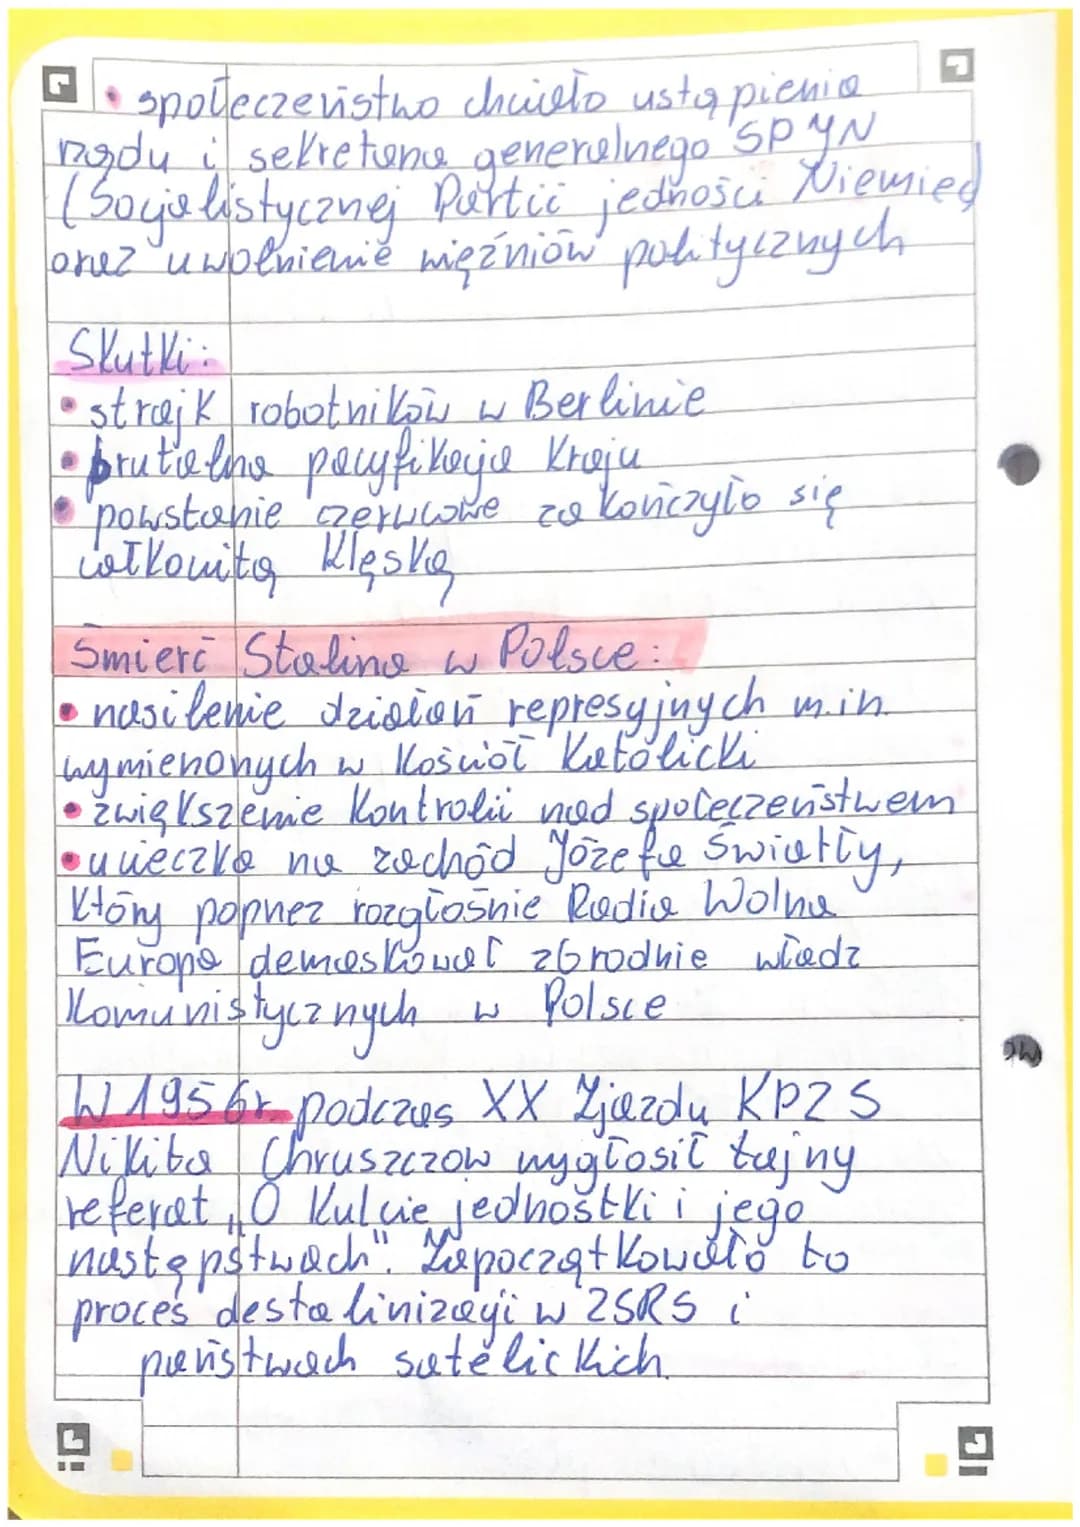 • społeczeństwo chciało ustąpienia
rządu i sekretarza generalnego SPJN
(Socjalistycznej Partii jedności Niemiec)
oraz uwolnienie więźniów politycznych
Skutki:
• strajk robotników w Berlinie
• brutalna pacyfikacja kraju
• powstanie czerwcowe zakończyło się
całkowitą klęską
Śmierć Stalina w Polsce:
• nasilenie działań represyjnych m.in.
wymienonych w Kościół Katolicki
• zwiększenie kontrolii nad społeczeństwem
• ucieczka na zachód Józefa Światły,
który poprzez rozgłośnie Radia Wolna
Europa demaskował zbrodnie władz
komunistycznych w Polsce
W 1956r. podczas XX Zjazdu KPZS
Nikita Chruszczow wygłosił tajny
referat „O kulcie jednostki i jego
następstwach". Zapoczątkowało to
proces destalinizacji w ZSRS i
państwach satelickich.